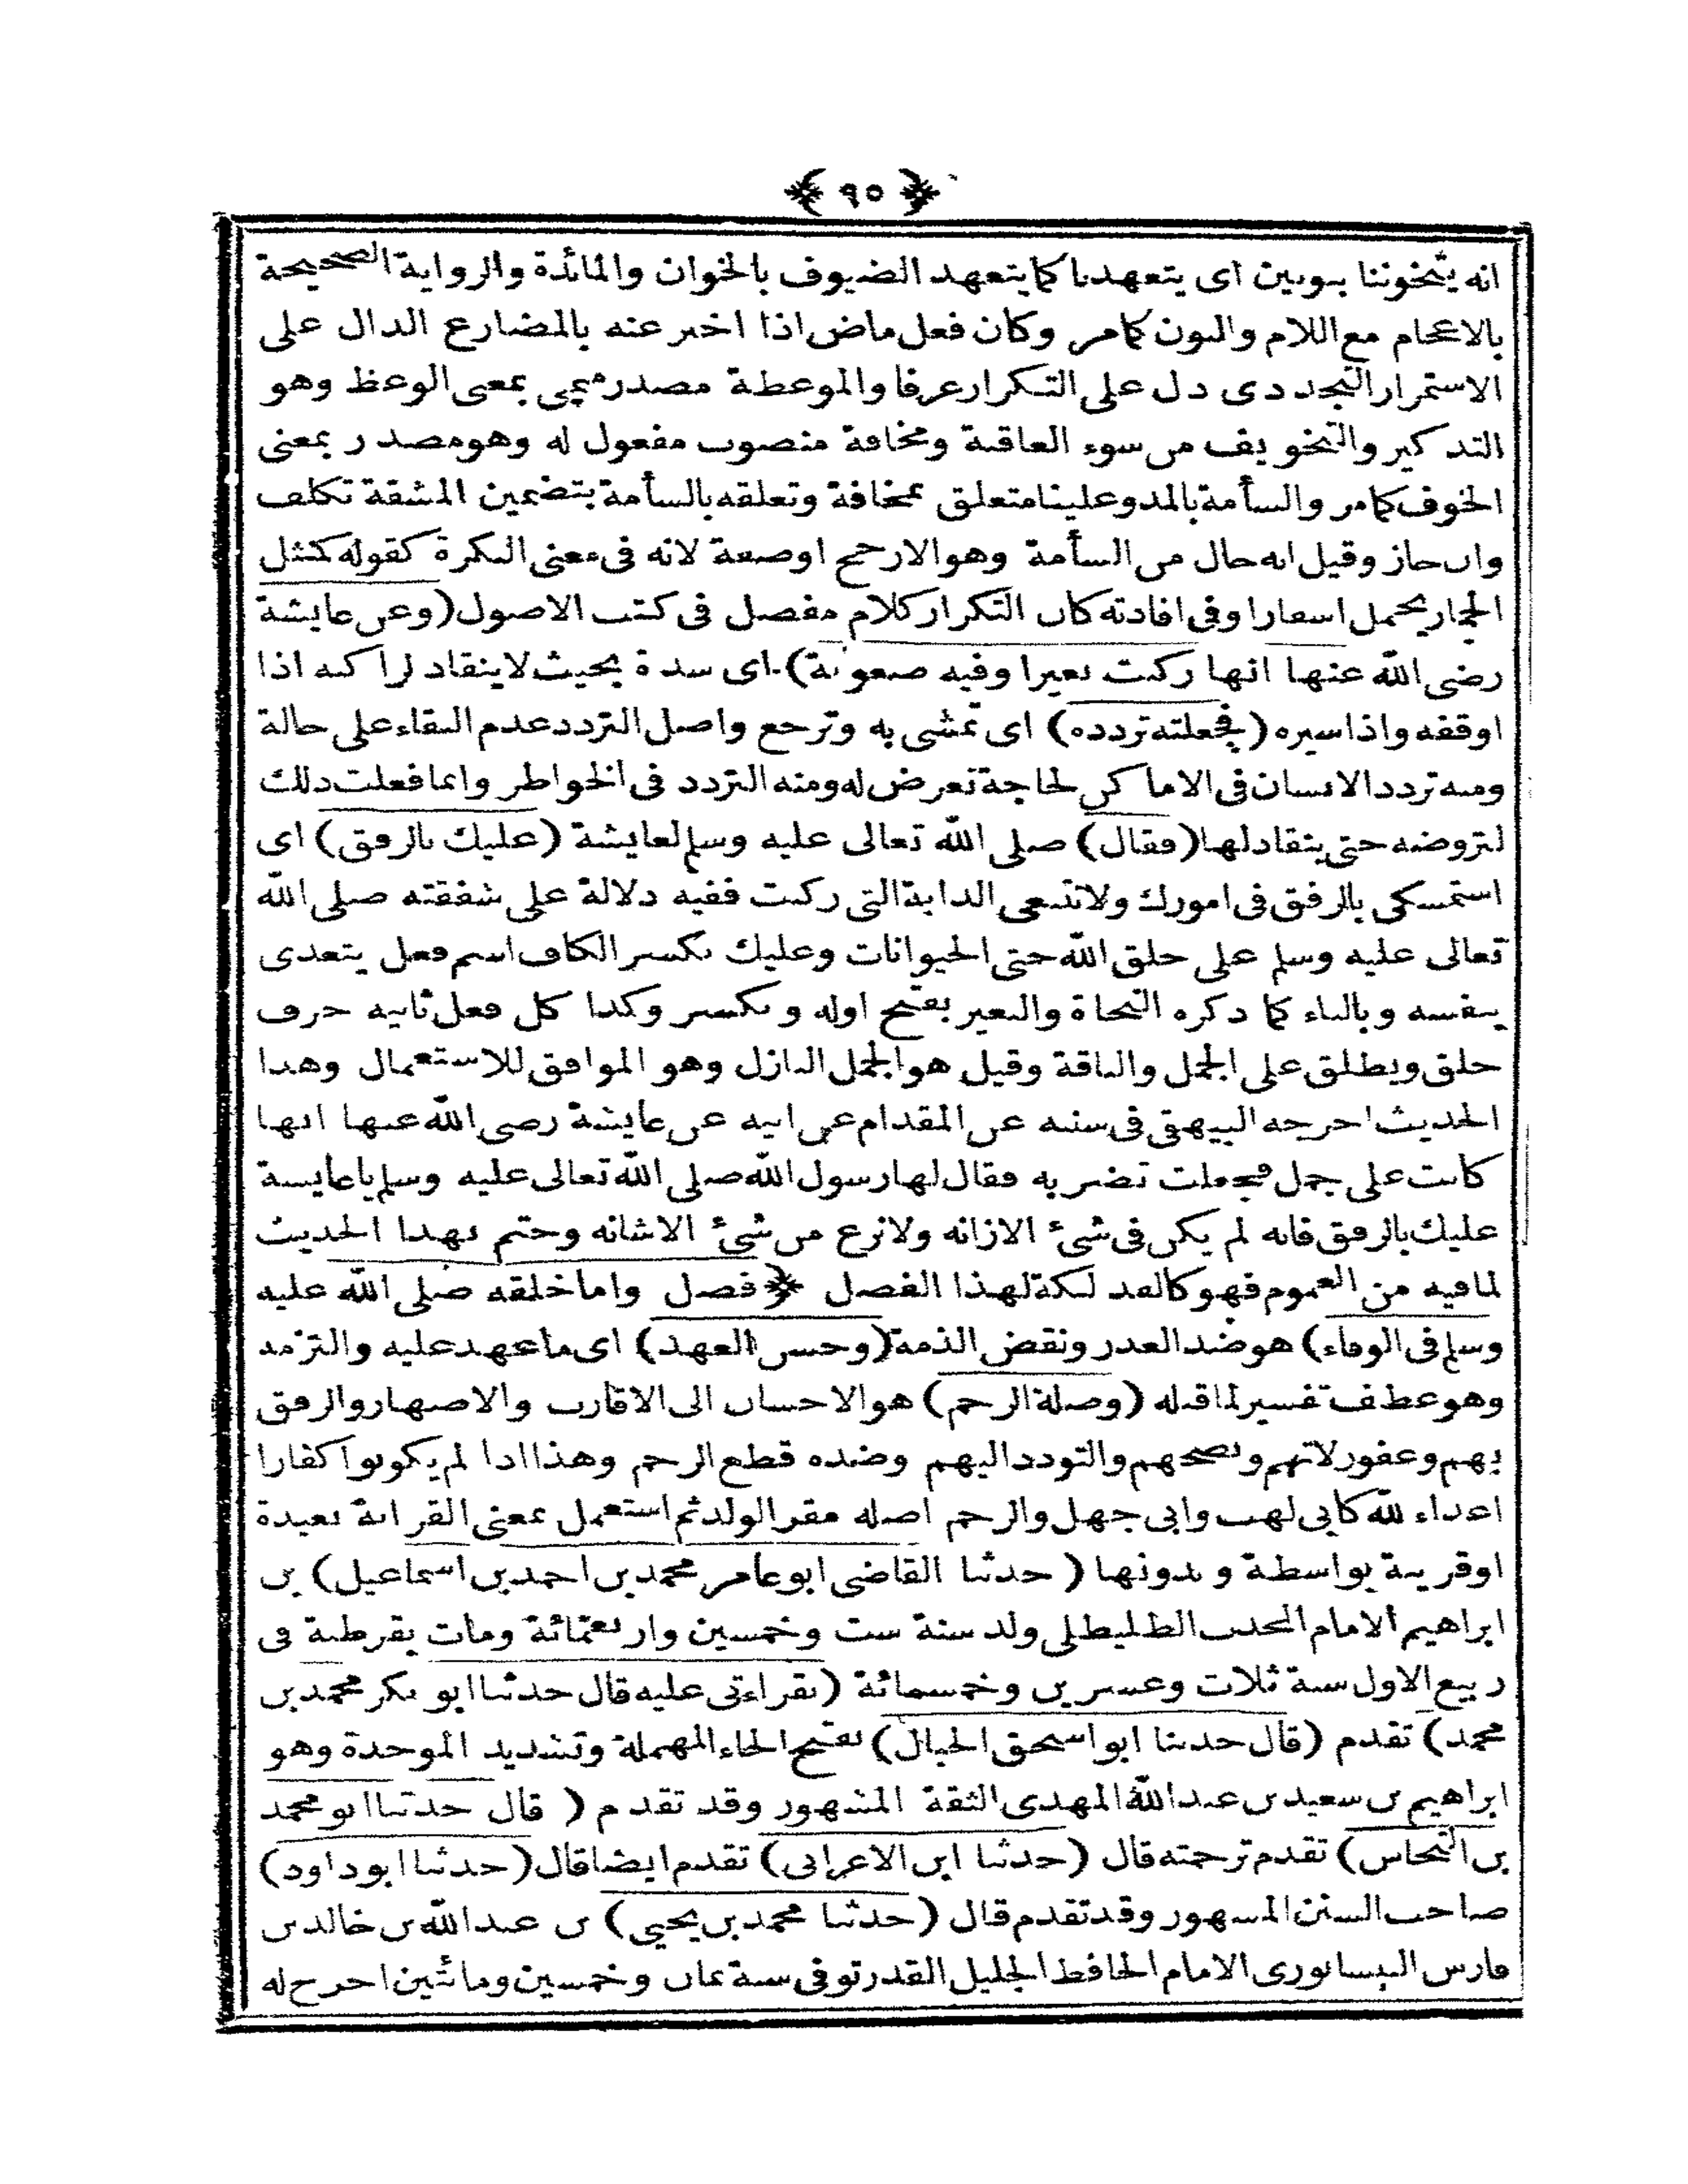 ﴿ ٩٥ ﴾
انه يتخوننا بنونين اى يتعهدنا كما يتعهد الضيوف بالخوان والمائدة والرواية الصحيحة
بالاعجام مع اللام والنون كمامر وكان فعل ماض اذا اخبر عنه بالمضارع الدال على
الاستمرار التجددى دل على التكرار عرفا والموعظة مصدر ميمى بمعنى الوعظ وهو
التذكير والتخويف من سوء العاقبة ومخافة منصوب مفعول له وهو مصدر بمعنى
الخوف كمامر والسأمة بالمد وعلينا متعلق بمخافة وتعلقه بالسأمة بتضمين المشقة تكلف
وان جاز وقيل انه حال من السأمة وهو الارجح اوصفة لانه فى معنى النكرة كقوله كمثل
الحمار يحمل اسفارا وفى افادته كان التكرار كلام مفصل فى كتب الاصول (وعن عايشة
رضى الله عنها انها ركبت بعيرا وفيه صعوبة) اى شدة بحيث لاينقاد لراكبه اذا
اوقفه واذا سيره (فجعلته تردده) اى تمشى به وترجع واصل التردد عدم البقاء على حالة
ومنه تردد الانسان فى الاماكن لحاجة تعرض له ومنه التردد فى الخواطر وانما فعلت ذلك
لتروضه حتى ينقاد لها (فقال) صلى الله تعالى عليه وسلم لعايشة (عليك بالرفق) اى
استمسكى بالرفق فى امورك ولاتتعبى الدابة التى ركبت ففيه دلالة على شفقته صلى الله
تعالى عليه وسلم على خلق الله حتى الحيوانات وعليك بكسر الكاف اسم فعل يتعدى
بنفسه وبالباء كما ذكره النحاة والبعير بفتح اوله وبكسر وكذا كل فعل ثانيه حرف
حلق ويطلق على الجمل والناقة وقيل هو الجمل البازل وهو الموافق للاستعمال وهذا
الحديث اخرجه البيهقى فى سننه عن المقدام عن ابيه عن عايشة رضى الله عنها انها
كانت على جمل فجعلت تضربه فقال لها رسول الله صلى الله تعالى عليه وسلم ياعايشة
عليك بالرفق فانه لم يكن فى شىء الازانه ولانزع من شىء الاشانه وختم بهذا الحديث
لمافيه من العموم فهو كالفذلكة لهذا الفصل ﴿ فصل واما خلقه صلى الله عليه
وسلم فى الوفاء) هو ضد الغدر ونقض الذمة (وحسن العهد) اى ماعهد عليه والتزمه
وهو عطف تفسير لماقبله (وصلة الرحم) هو الاحسان الى الاقارب والاصهار والرفق
بهم وغفور لاتهم ونصحهم والتودد اليهم وضده قطع الرحم وهذا اذا لم يكونوا كفارا
اعداء لله كابى لهب وابى جهل والرحم اصله مقر الولد ثم استعمل بمعنى القرابة بعيدة
اوقريبة بواسطة وبدونها (حدثنا القاضى ابوعامر محمد بن احمد بن اسماعيل) بن
ابراهيم الامام المحدث الطليطلى ولد سنة ست وخمسين واربعمائة ومات بقرطبة فى
ربيع الاول سنة ثلاث وعشرين وخمسمائة (بقراءتى عليه قال حدثنا ابو بكر محمد بن
محمد) تقدم (قال حدثنا ابو اسحق الحبال) بفتح الحاء المهملة وتشديد الموحدة وهو
ابراهيم بن سعيد بن عبد الله المهدى الثقة المشهور وقد تقدم (قال حدثنا ابو محمد
بن النحاس) تقدم ترجمته قال (حدثنا ابن الاعرابى) تقدم ايضا قال (حدثنا ابوداود)
صاحب السنن المشهور وقد تقدم قال (حدثنا محمد بن يحيى) بن عبد الله بن خالد بن
فارس النيسابورى الامام الحافظ الجليل القدر توفى سنة ثمان وخمسين ومائتين اخرج له